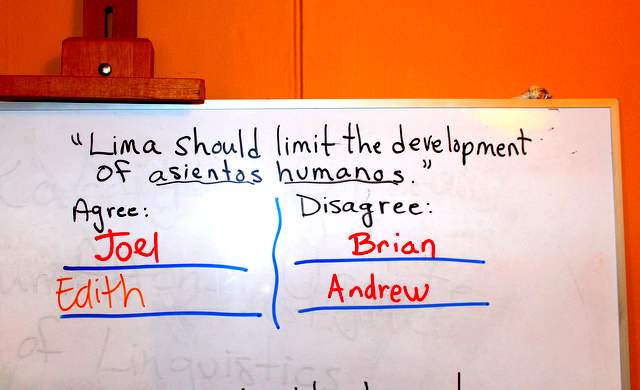 "Lima should limit the development
of asientos humanos."
Agree:
Disagree:
Joel
Brian
Edith
Andrew
of Linguistics